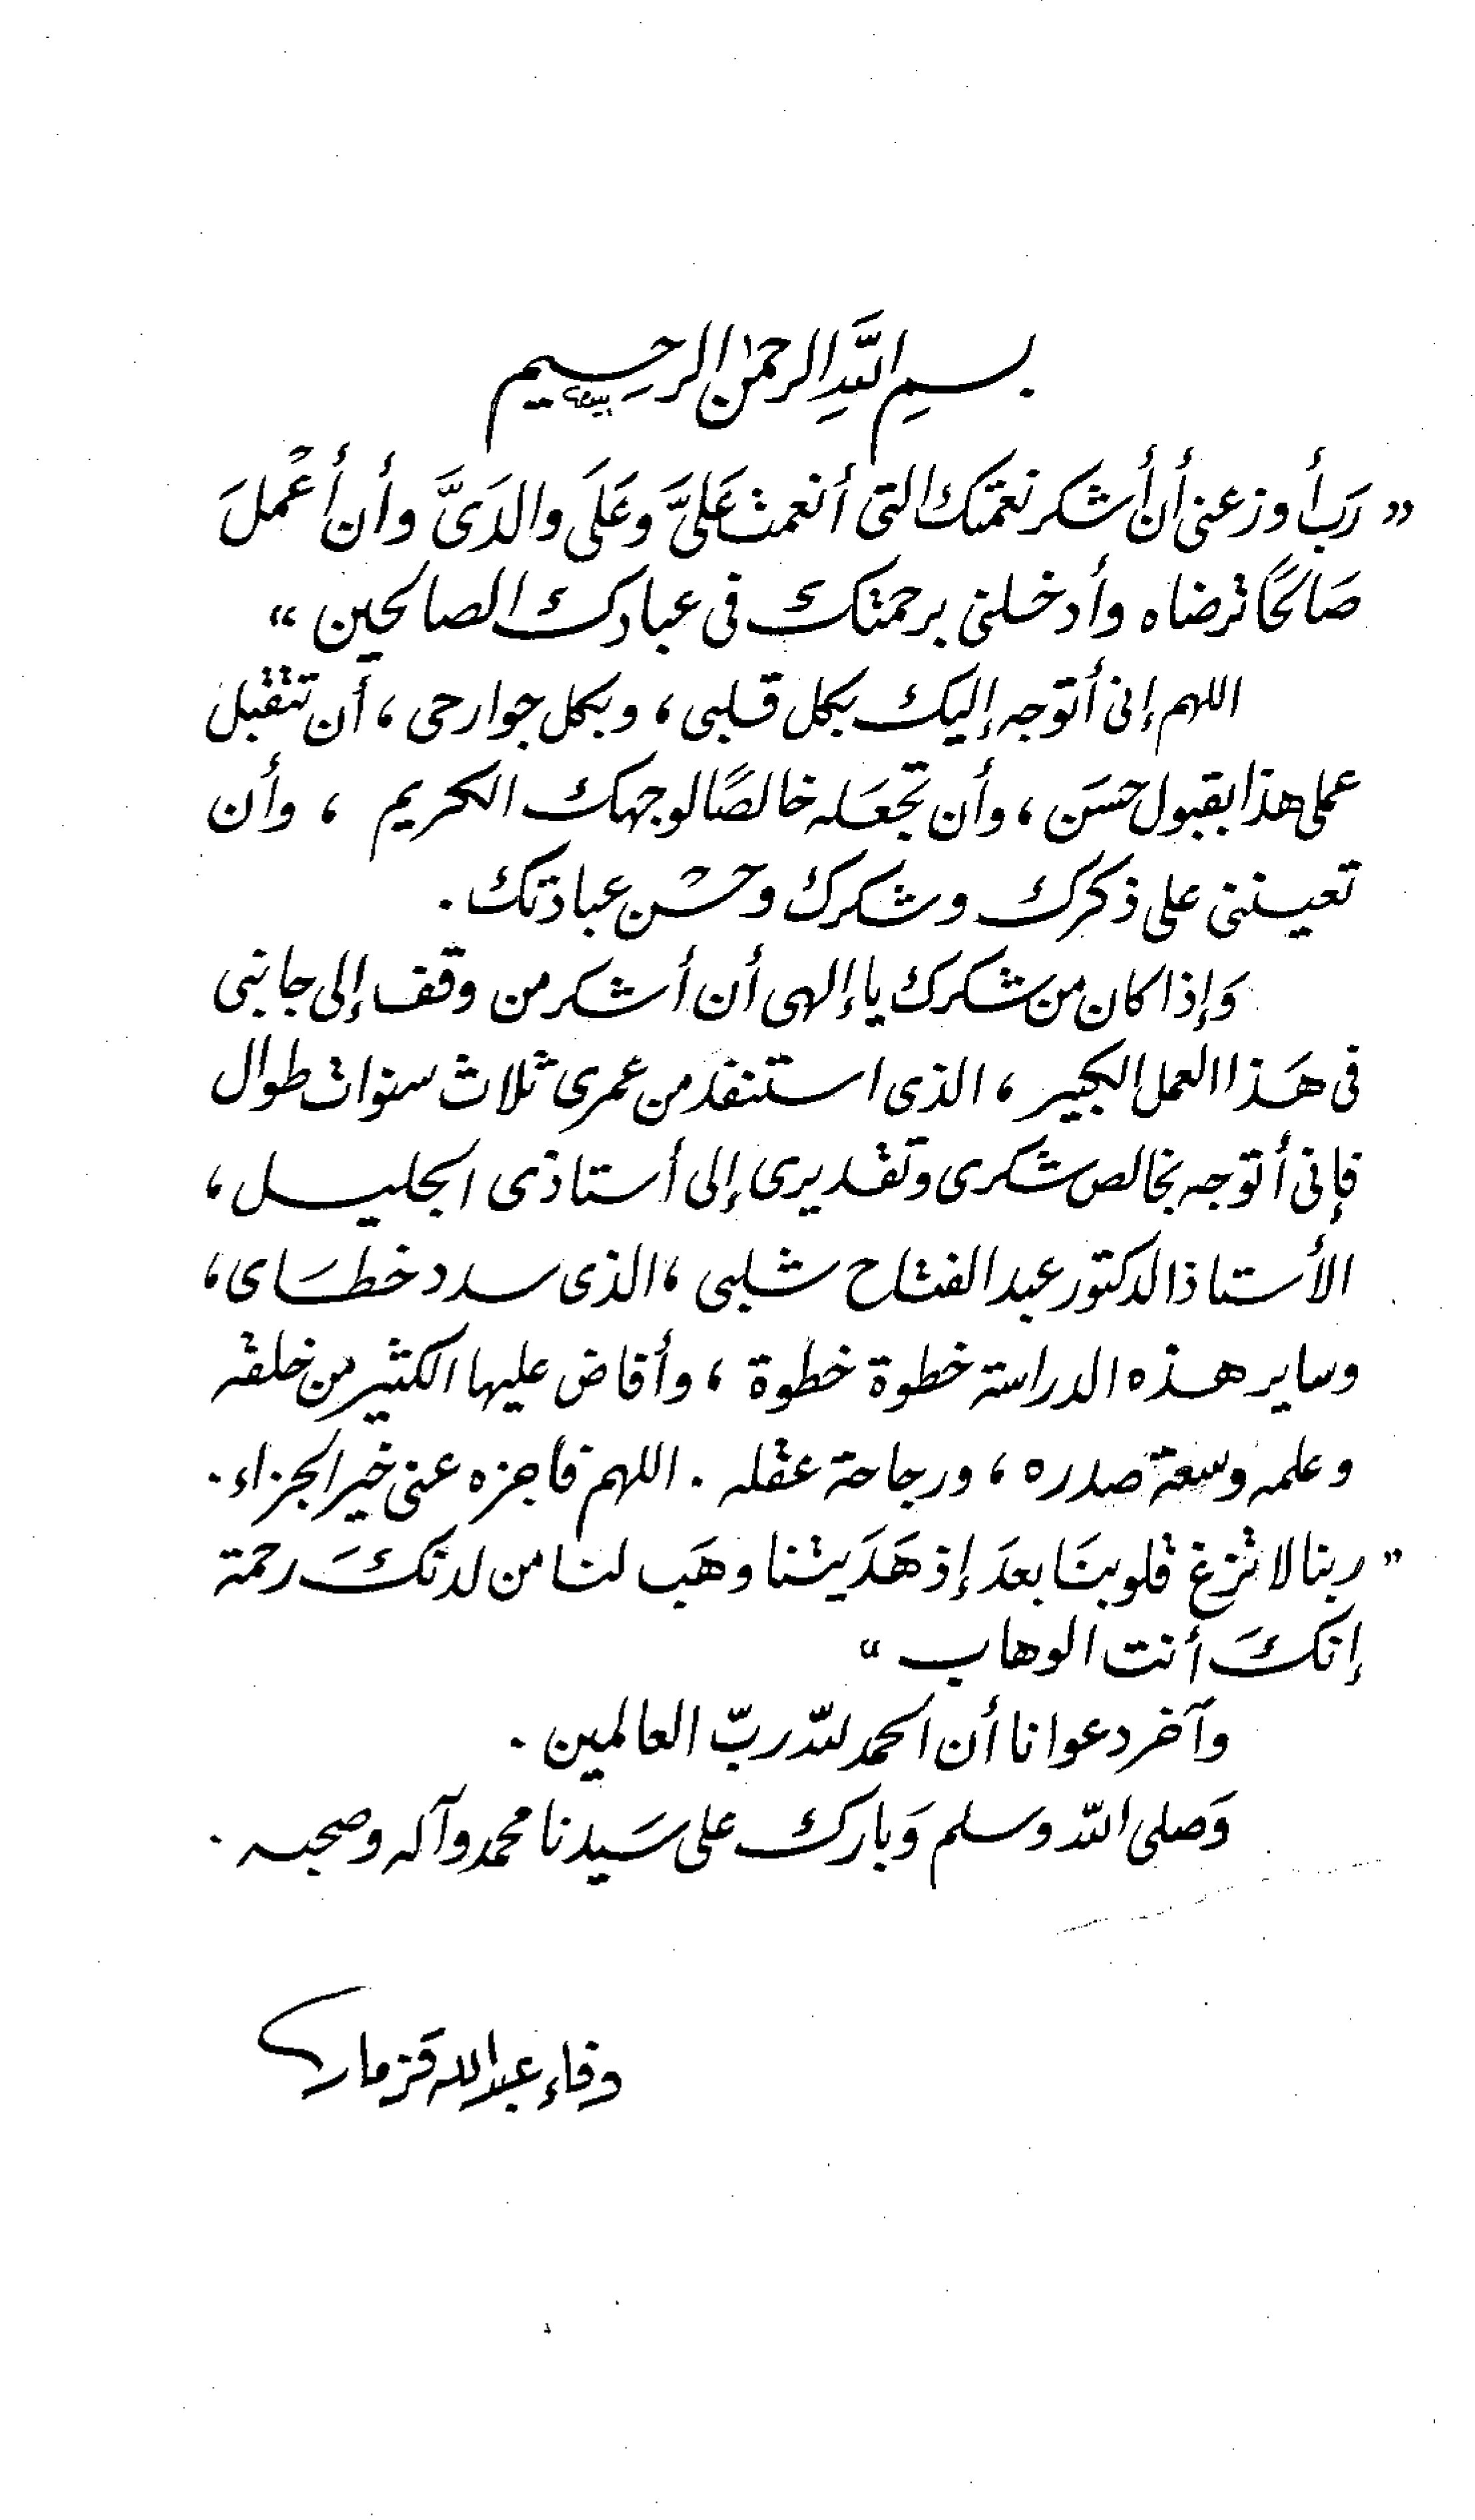 بسمِ اللهِ الرحمن الرحِيم
" رَب أوزعنى أن أشكر نعمتك التى أنعمت عَلىَّ وعَلَى والدَىَّ وأن أعْملَ
صَالحًا ترضاه وأدخلنى برحمتك فى عبادك الصالحين "
اللهم إنى أتوجه إليك بكل قلبى ، وبكل جوارحى ، أن تتقبل
عملى هذا بقبول حسَن ، وأن تجعَله خالصًا لوجهك الكريم ، وأن
تعيننى على ذكرك وشكرك وحسْن عبادتك .
وَإذا كان من شكرك يا إلهى أن أشكر من وقف إلى جانبى
فى هَذا العمل الكبير ، الذى استنفد من عمرى ثلاث سنوات طوال
فإنى أتوجه بخالص شكرى وتقديرى إلى أستاذى الجليل ،
الأستاذ الدكتور عبد الفتاح شلبى ، الذى سدد خطَاى ،
وساير هذه الدراسة خطوة خطوة ، وأفاض عليها الكثير من خلقه
وعلمه وسعة صدره ، ورجاحة عقله . اللهم فاجزه عنى خير الجزاء .
" ربنا لا تزغ قلوبنَا بعدَ إذ هَدَيتنا وهَب لنا من لدنكَ رحمة
إنكَ أنت الوهاب "
وآخر دعوانا أن الحمد للّه ربّ العالمين .
وَصلى اللّه وسلم وَبارك على سَيدنا محمد وآله وصحبه .
وفاء عبد الله قزمار